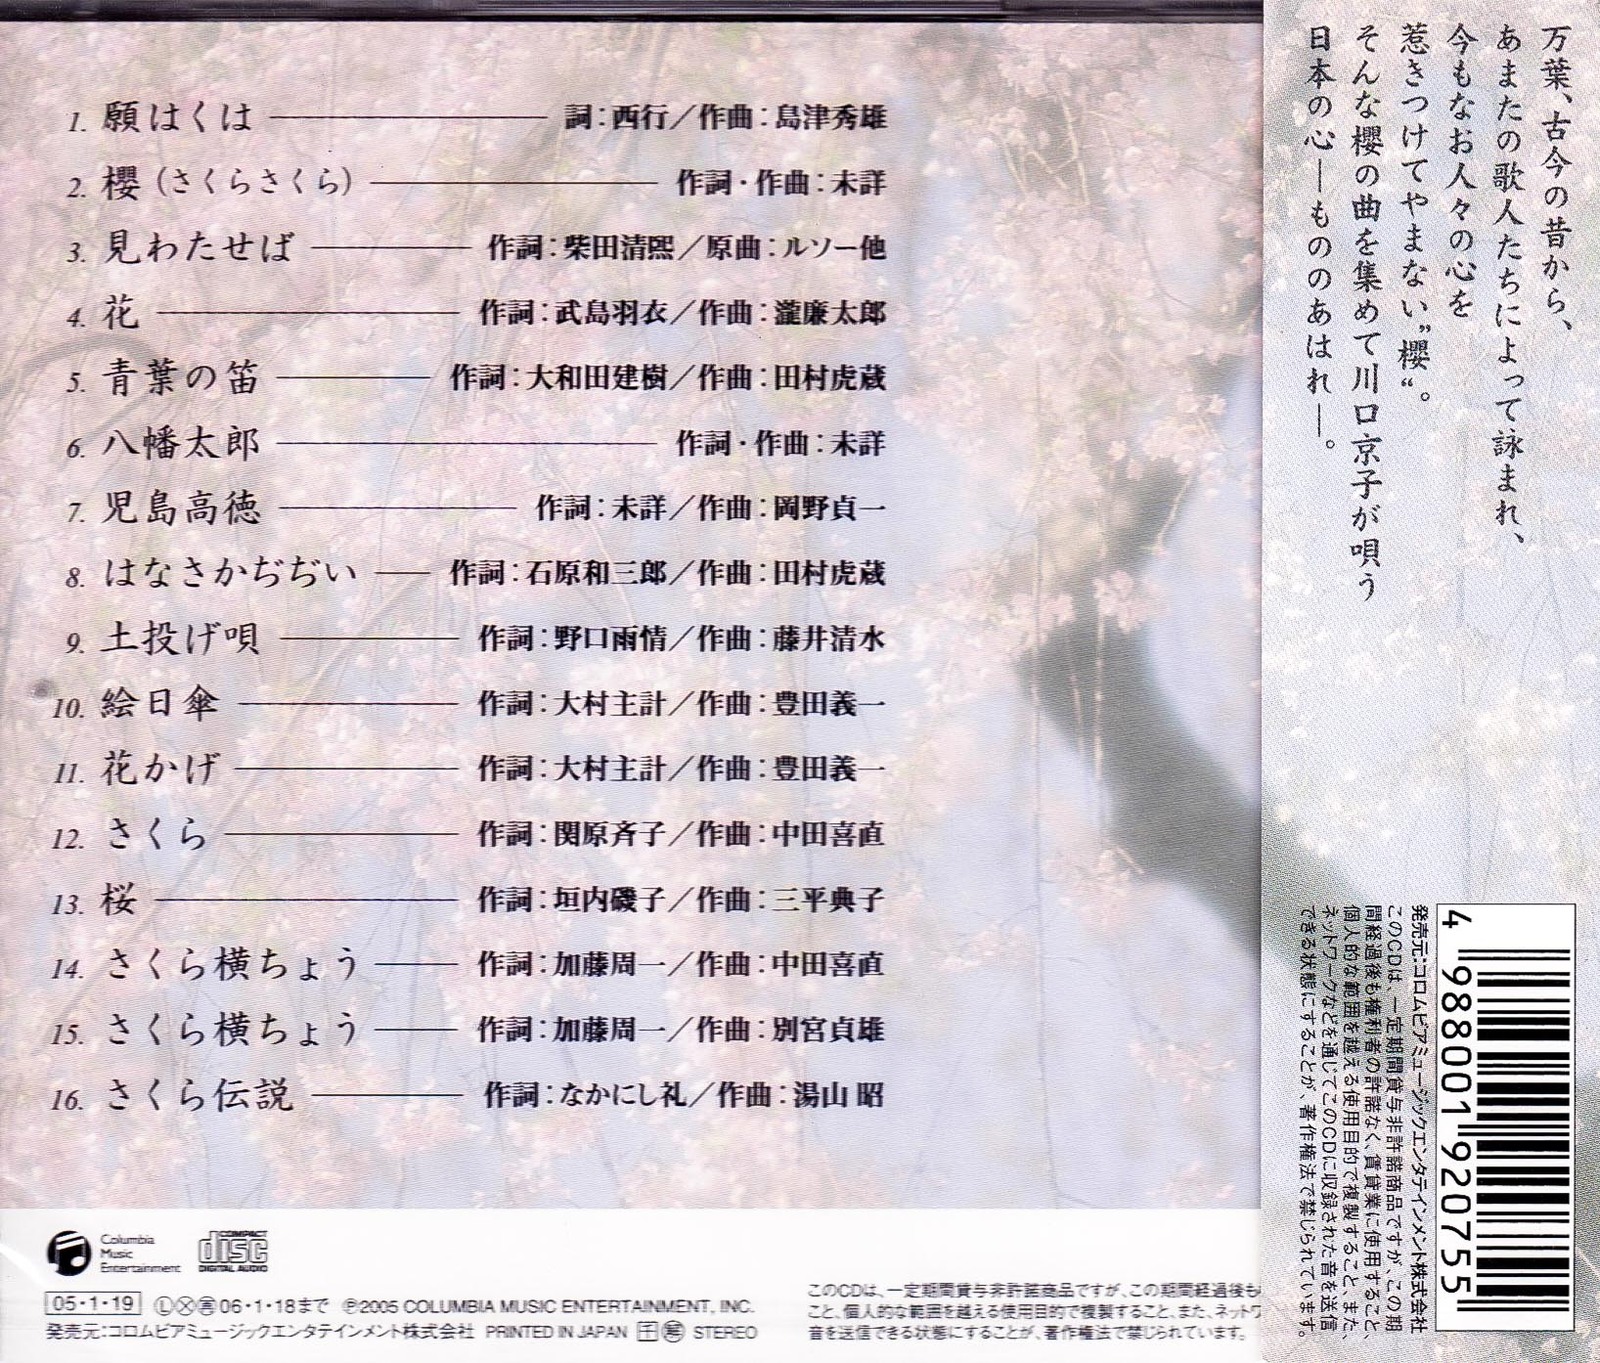 1. 願はくは 詞：西行／作曲：島津秀雄
2. 櫻（さくらさくら） 作詞・作曲：未詳
3. 見わたせば 作詞：柴田清熙／原曲：ルソー他
4. 花 作詞：武島羽衣／作曲：瀧廉太郎
5. 青葉の笛 作詞：大和田建樹／作曲：田村虎蔵
6. 八幡太郎 作詞・作曲：未詳
7. 児島高徳 作詞：未詳／作曲：岡野貞一
8. はなさかぢぢい 作詞：石原和三郎／作曲：田村虎蔵
9. 土投げ唄 作詞：野口雨情／作曲：藤井清水
10. 絵日傘 作詞：大村主計／作曲：豊田義一
11. 花かげ 作詞：大村主計／作曲：豊田義一
12. さくら 作詞：関原斉子／作曲：中田喜直
13. 桜 作詞：垣内磯子／作曲：三平典子
14. さくら横ちょう 作詞：加藤周一／作曲：中田喜直
15. さくら横ちょう 作詞：加藤周一／作曲：別宮貞雄
16. さくら伝説 作詞：なかにし礼／作曲：湯山 昭
Columbia
Music
Entertainment
COMPACT
disc
DIGITAL AUDIO
05・1・19 Ⓛ 06・1・18まで ℗2005 COLUMBIA MUSIC ENTERTAINMENT, INC.
発売元：コロムビアミュージックエンタテインメント株式会社 PRINTED IN JAPAN STEREO
このCDは、一定期間貸与非許諾商品ですが、この期間経過後も
こと、個人的な範囲を越える使用目的で複製すること、また、ネットワ
音を送信できる状態にすることが、著作権法で禁じられています。
万葉、古今の昔から、
あまたの歌人たちによって詠まれ、
今もなお人々の心を
惹きつけてやまない”櫻“。
そんな櫻の曲を集めて川口京子が唄う
日本の心―もののあはれ―。
4 988001 920755
発売元：コロムビアミュージックエンタテインメント株式会社
このCDは、一定期間貸与非許諾商品ですが、この期
間経過後も権利者の許諾なく、賃貸業に使用すること、
個人的な範囲を越える使用目的で複製すること、また、
ネットワークなどを通じてこのCDに収録された音を送信
できる状態にすることが、著作権法で禁じられています。